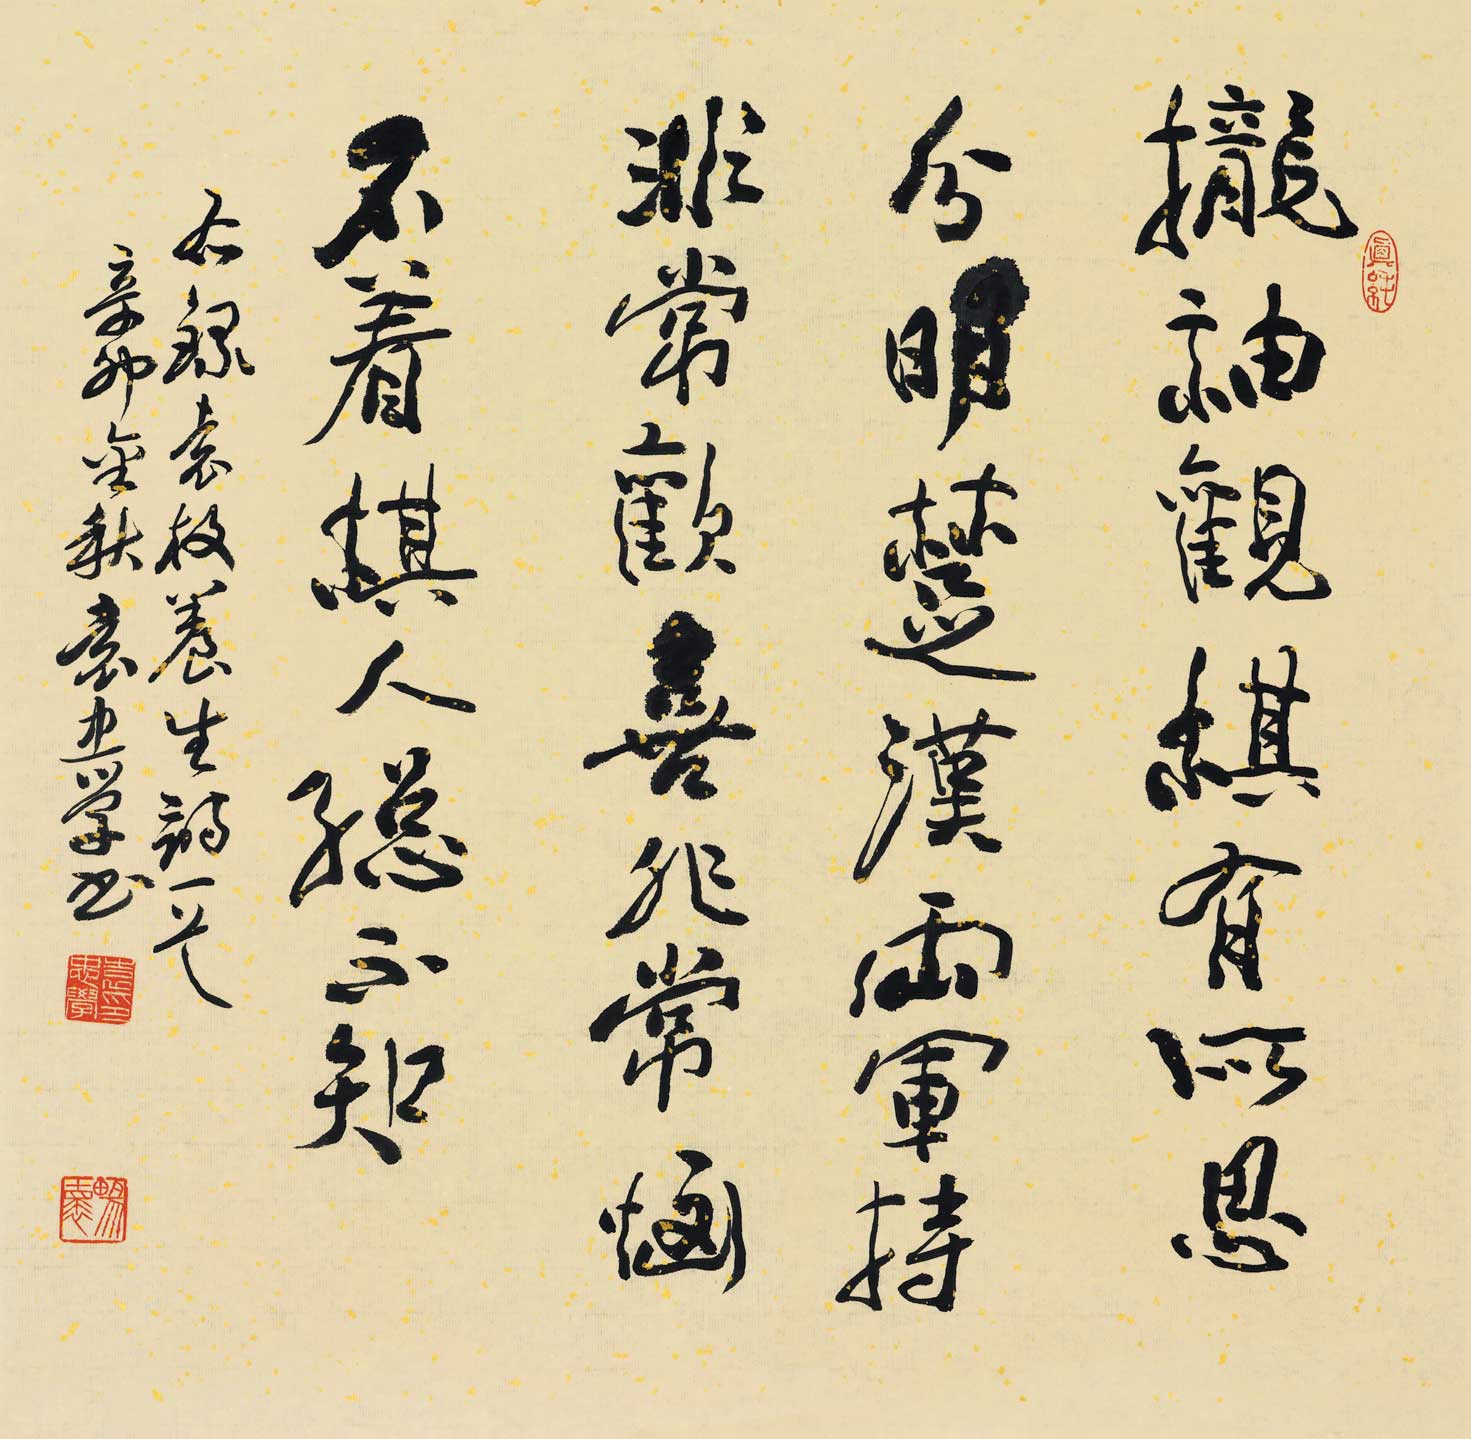 攏袖觀棋有所思
分明楚漢兩軍持
非常歡喜非常惱
不着棋人總不知
右錄袁枚養生詩一首
辛卯金秋袁忠學书